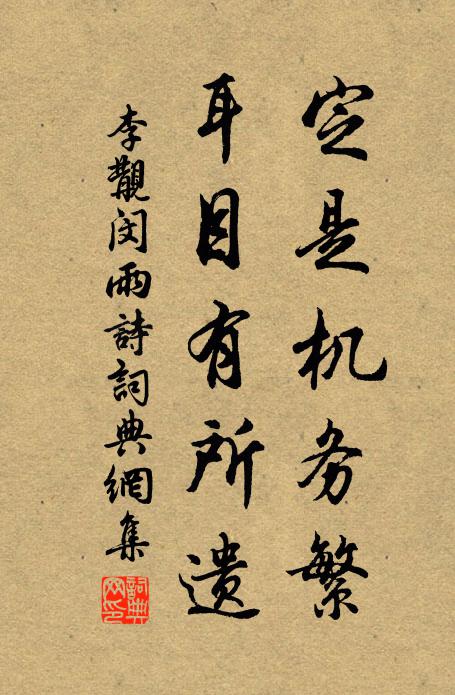 定是机务繁
耳目有所遗
李觏闵雨詩詞典網集
詩典
网印